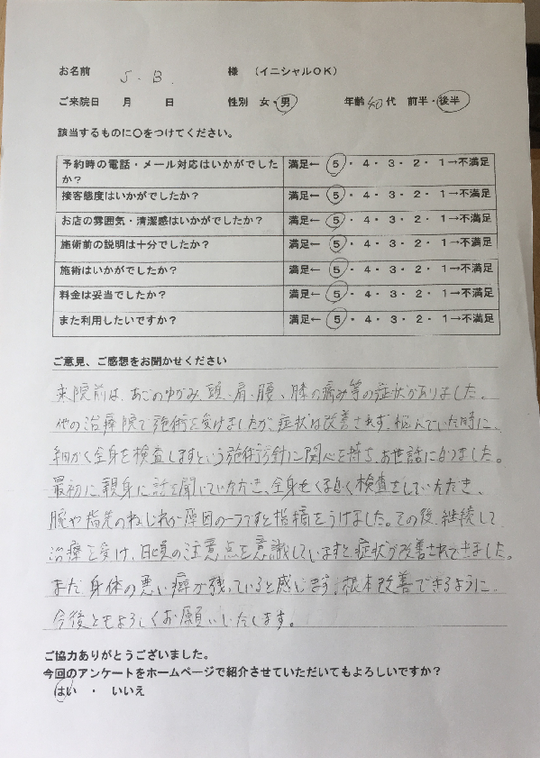 お名前 J.B. 様 (イニシャルOK)
ご来院日 月 日 性別 女・男 年齢 40代 前半・後半
該当するものに〇をつけてください。
予約時の電話・メール対応はいかがでした
か? 満足← 5・4・3・2・1→不満足
接客態度はいかがでしたか? 満足← 5・4・3・2・1→不満足
お店の雰囲気・清潔感はいかがでしたか? 満足← 5・4・3・2・1→不満足
施術前の説明は十分でしたか? 満足← 5・4・3・2・1→不満足
施術はいかがでしたか? 満足← 5・4・3・2・1→不満足
料金は妥当でしたか? 満足← 5・4・3・2・1→不満足
また利用したいですか? 満足← 5・4・3・2・1→不満足
ご意見、ご感想をお聞かせください
来院前は、あごのゆがみ、頭、肩、腰、膝の痛み等の症状がありました。
他の治療院で施術を受けましたが、症状は改善されず、悩んでいた時に、
細かく全身を検査しますという施術方針に関心を持ち、お世話になりました。
最初に、親身に話を聞いていただき、全身をくまなく検査をしていただき、
腕や指先のねじれが原因の一つですと指摘をうけました。その後、継続して
治療を受け、日頃の注意点を意識していますと症状が改善されてきました。
まだ身体の悪い癖が残っていると感じます。根本改善できるように、
今後ともよろしくお願いいたします。
ご協力ありがとうございました。
今回のアンケートをホームページで紹介させていただいてもよろしいですか?
はい ・ いいえ